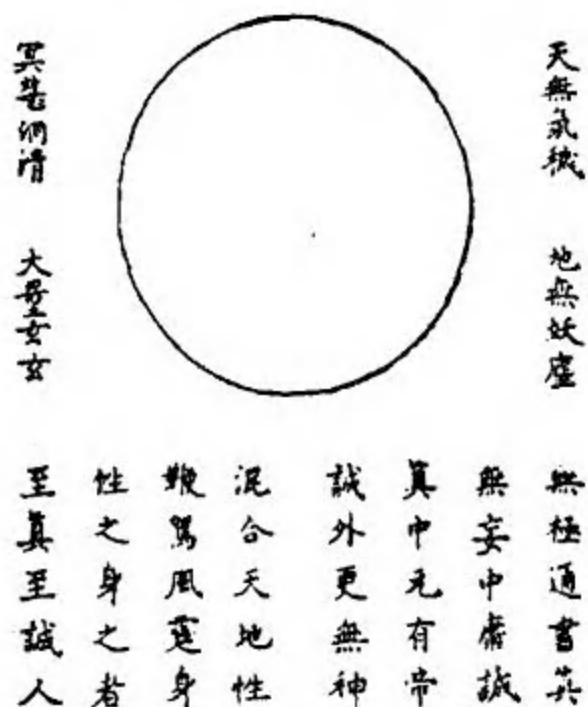 天無氛穢 地無妖塵
冥慧洞清 大量玄玄
無極通書眞
無妄中庸誠
眞中元有帝
誠外更無神
混合天地性
鞭駕風霆身
性之身之者
至眞至誠人